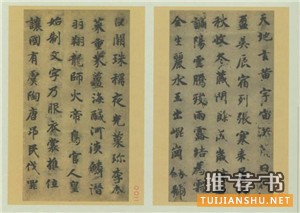 天地玄黄宇宙洪荒日月
盈昃辰宿列張寒來暑往
秋收冬藏閏餘成歲律呂
調陽雲騰致雨露結為霜
金生麗水玉出崑岡劍號
巨闕珠稱夜光菓珍李柰
菜重芥薑海鹹河淡鱗潛
羽翔龍師火帝鳥官人皇
始制文字乃服衣裳推位
讓國有虞陶唐弔民伐罪
推荐书
TUIJIANSHU.NET